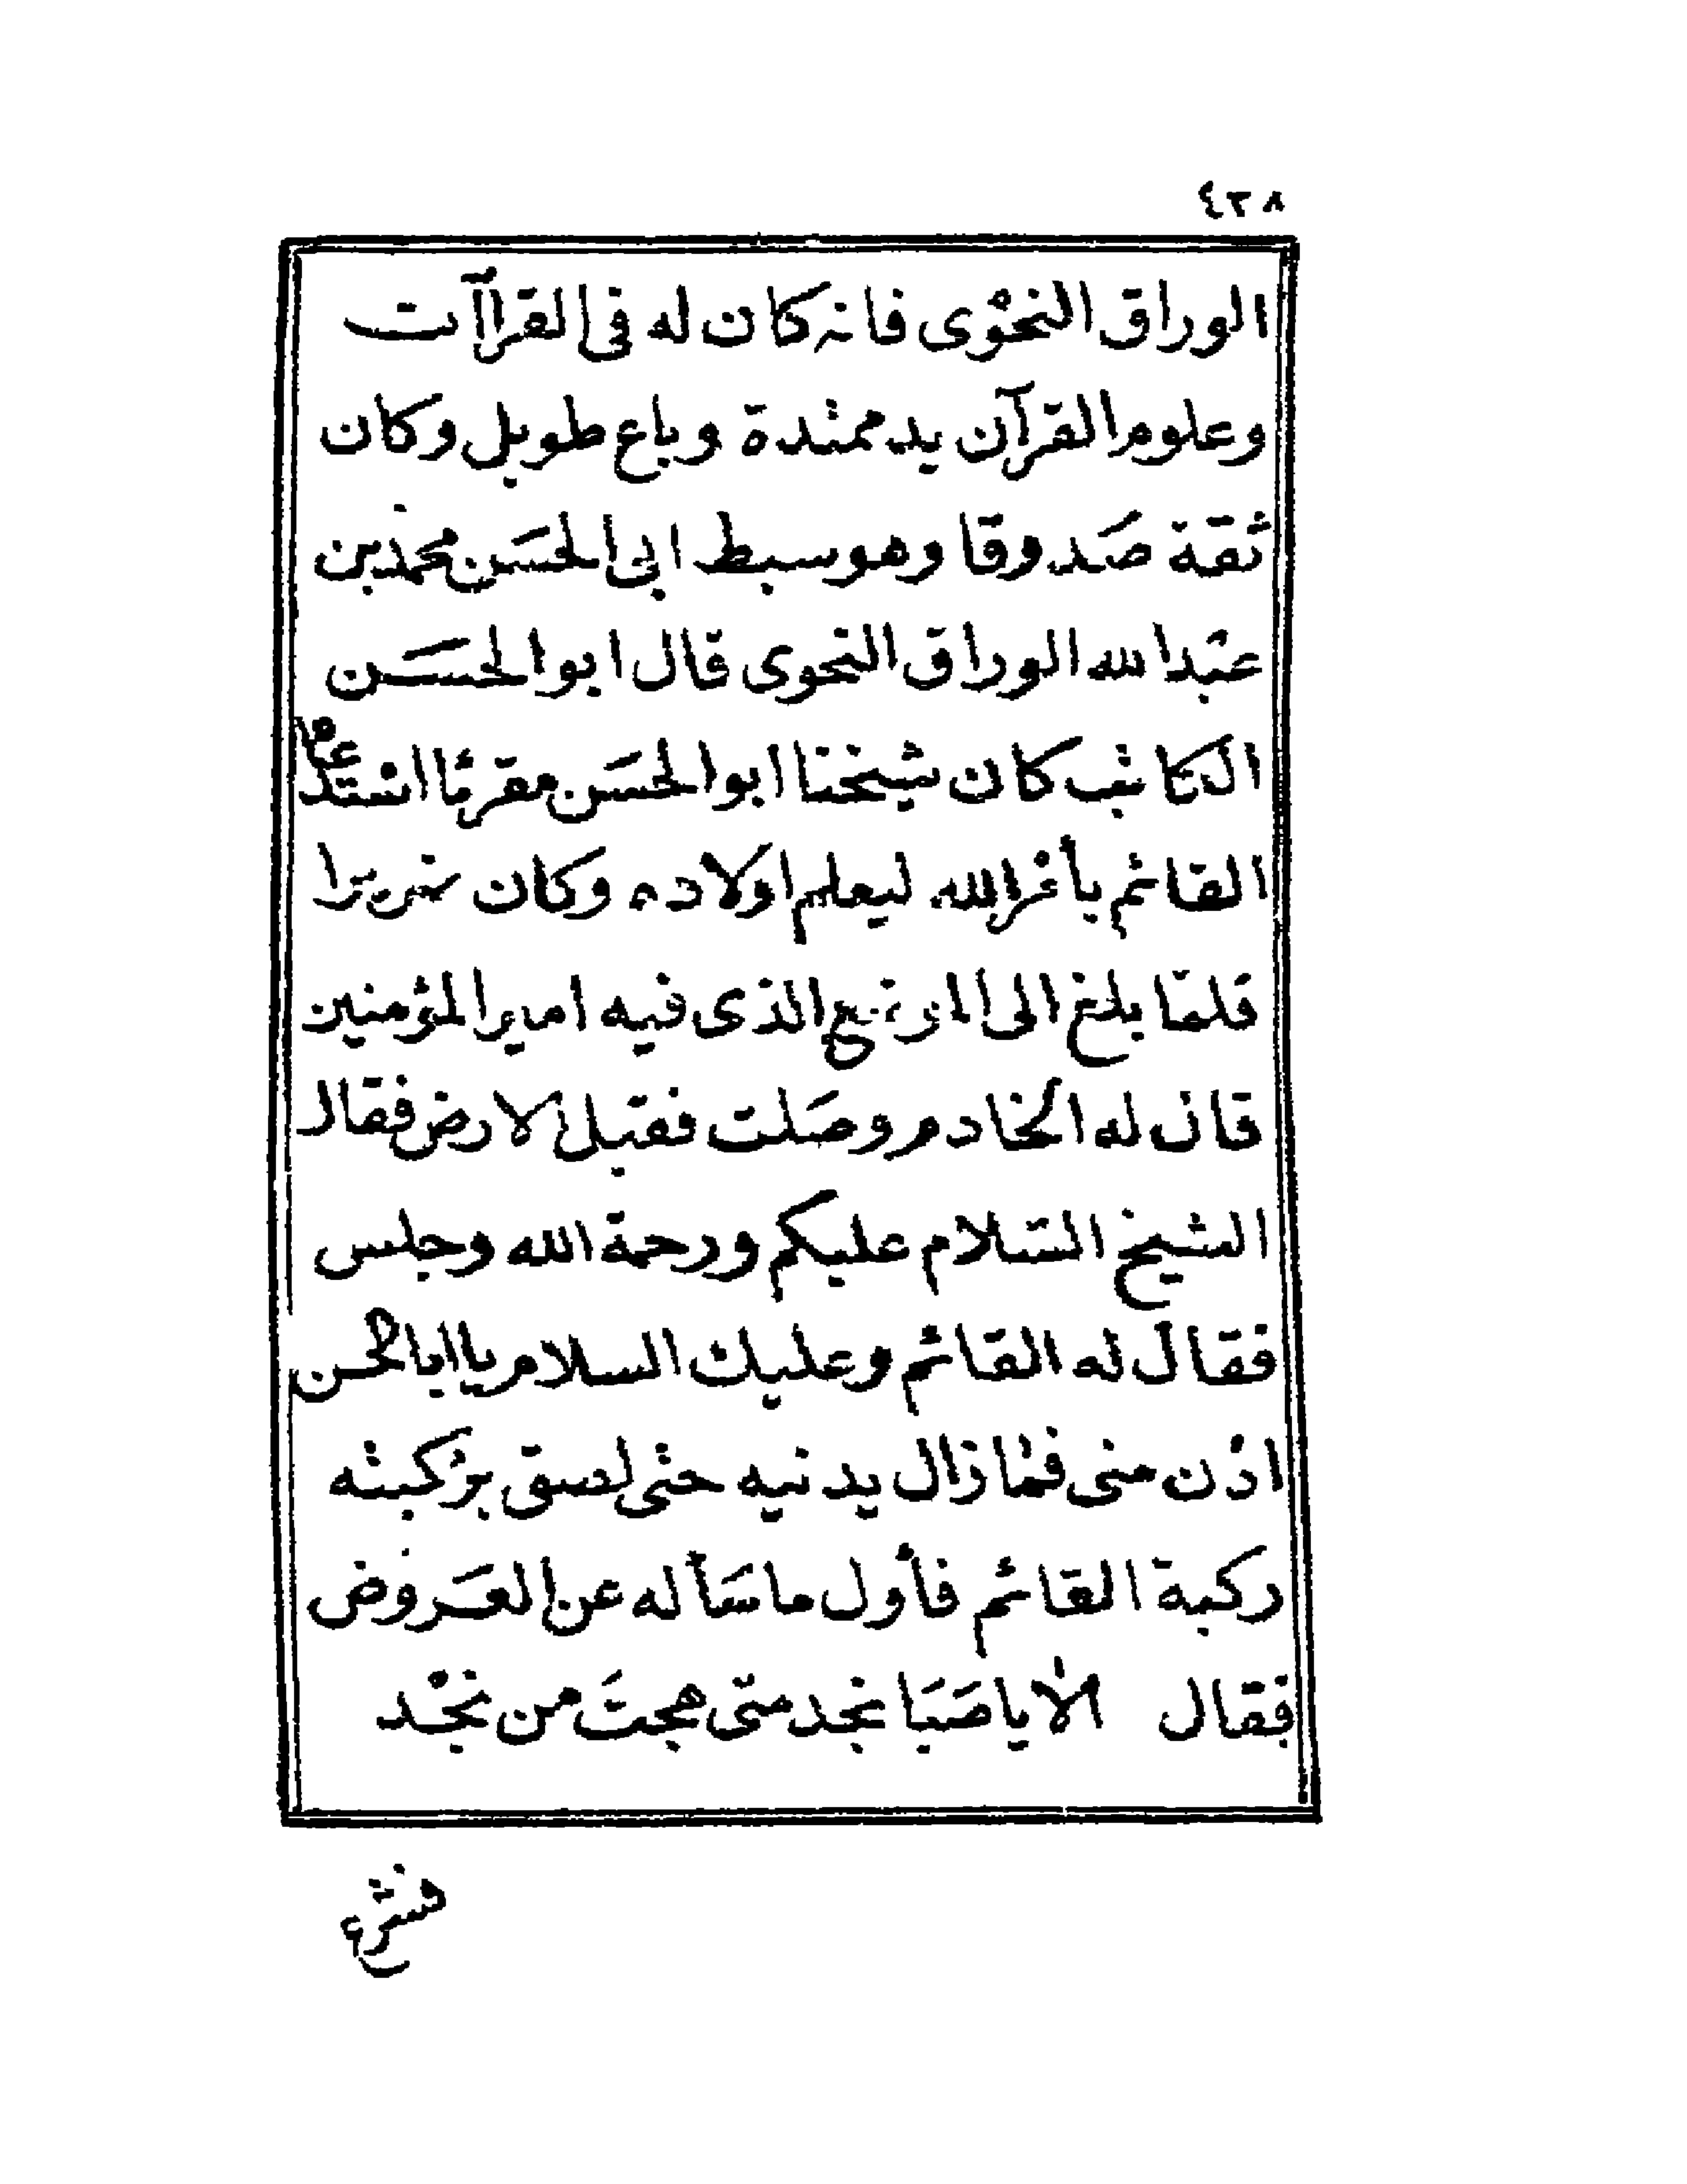 ٤٣٨
الوراق النحوى فانه كان له فى القراآت
وعلوم القرآن يد ممتدة وباع طويل وكان
ثقة صدوقا وهو سبط ابى الحسن محمد بن
عبد الله الوراق النحوى قال ابو الحسن
الكاتب كان شيخنا ابو الحسن مقرئا استدعاه
القائم بأمر الله ليعلم اولاده وكان ضريرا
فلما بلغ الى الموضع الذى فيه امير المؤمنين
قال له الخادم وصلت فقبل الارض فقال
الشيخ السلام عليكم ورحمة الله وجلس
فقال له القائم وعليك السلام يا ابا الحسن
ادن منى فما زال يدنيه حتى لصق بركبته
ركبة القائم فأول ما سأله عن العروض
فقال الا يا صَبَا نجد متى هجتَ من نجْد
فشرع